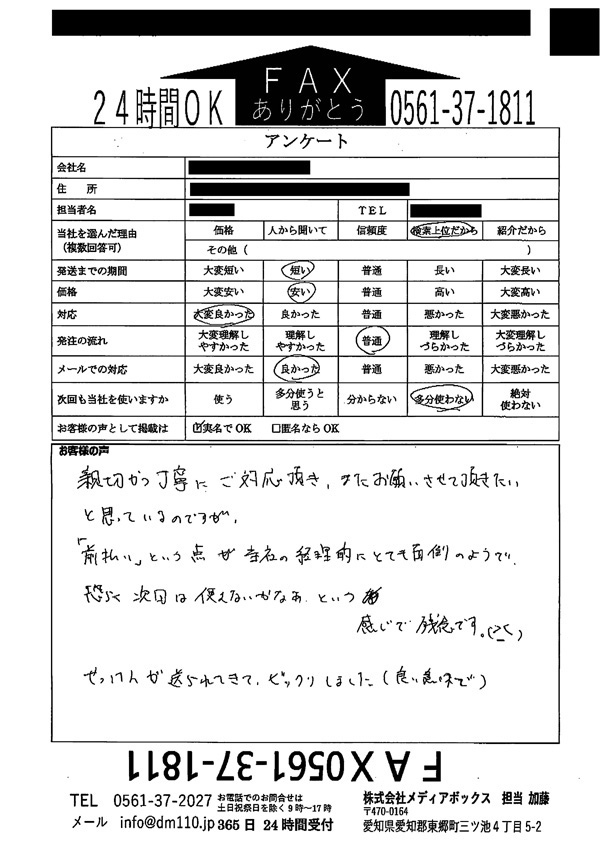 FAX
ありがとう
24時間OK
0561-37-1811
アンケート
会社名
住 所
担当者名 TEL
当社を選んだ理由 (複数回答可) 価格 人から聞いて 信頼度 検索上位だから 紹介だから
その他( )
発送までの期間 大変短い 短い 普通 長い 大変長い
価格 大変安い 安い 普通 高い 大変高い
対応 大変良かった 良かった 普通 悪かった 大変悪かった
発注の流れ 大変理解しやすかった 理解しやすかった 普通 理解しづらかった 大変理解しづらかった
メールでの対応 大変良かった 良かった 普通 悪かった 大変悪かった
次回も当社を使いますか 使う 多分使うと思う 分からない 多分使わない 絶対使わない
お客様の声として掲載は ☑実名でOK □匿名ならOK
お客様の声
親切かつ丁寧にご対応頂き、またお願いさせて頂きたい
と思っているのですが、
「前払い」という点が当社の経理的にとても面倒のようで、
恐らく次回は使えないかなぁ、という
感じで残念です。(泣)
せっけんが送られてきて、ビックリしました(良い意味で)
FAX0561-37-1811
TEL 0561-37-2027 お電話でのお問合せは
土日祝祭日を除く9時~17時
メール info@dm110.jp 365日24時間受付
株式会社メディアボックス 担当 加藤
〒470-0164
愛知県愛知郡東郷町三ツ池4丁目5-2